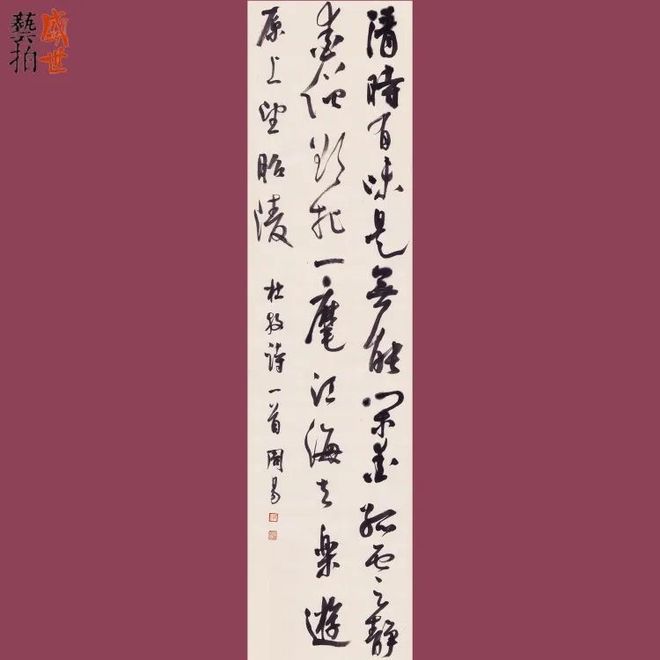 盛世
藝拍
清時有味是無能閑愛孤雲靜
愛僧欲把一麾江海去樂遊
原上望昭陵 杜牧詩一首 周易